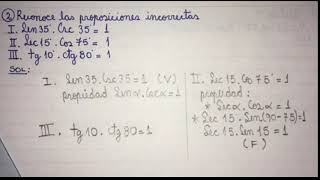 ② Reconoce las proposiciones incorrectas
I. Sen35°. Csc 35° = 1
II. Sec15°. Cos 75° = 1
III. tg10°. ctg80° = 1
SOL:
I. Sen35. Csc35 = 1 (V)
propiedad Senα. Cscα = 1
III. tg10. ctg80 = 1
II. Sec15. Cos75 = 1
propiedad:
* Secα. Cosα = 1
* Sec15. Sen(90-75) = 1
Sec15. Sen15 = 1
(F)